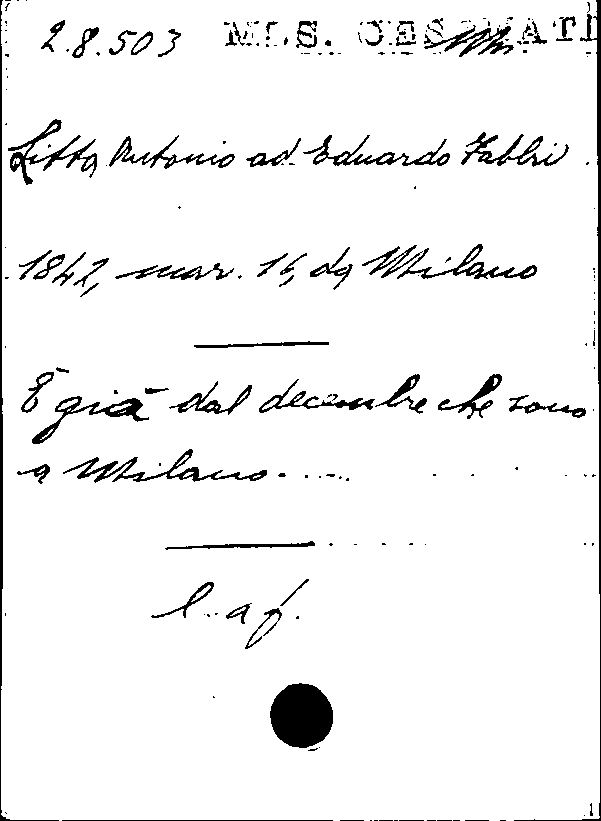 2.8.503 MSS. CESENATI
Litta Antonio ad Eduardo Fabbri
1842, mar. 15, da Milano
È già dal decembre che sono
a Milano.....
l. af.